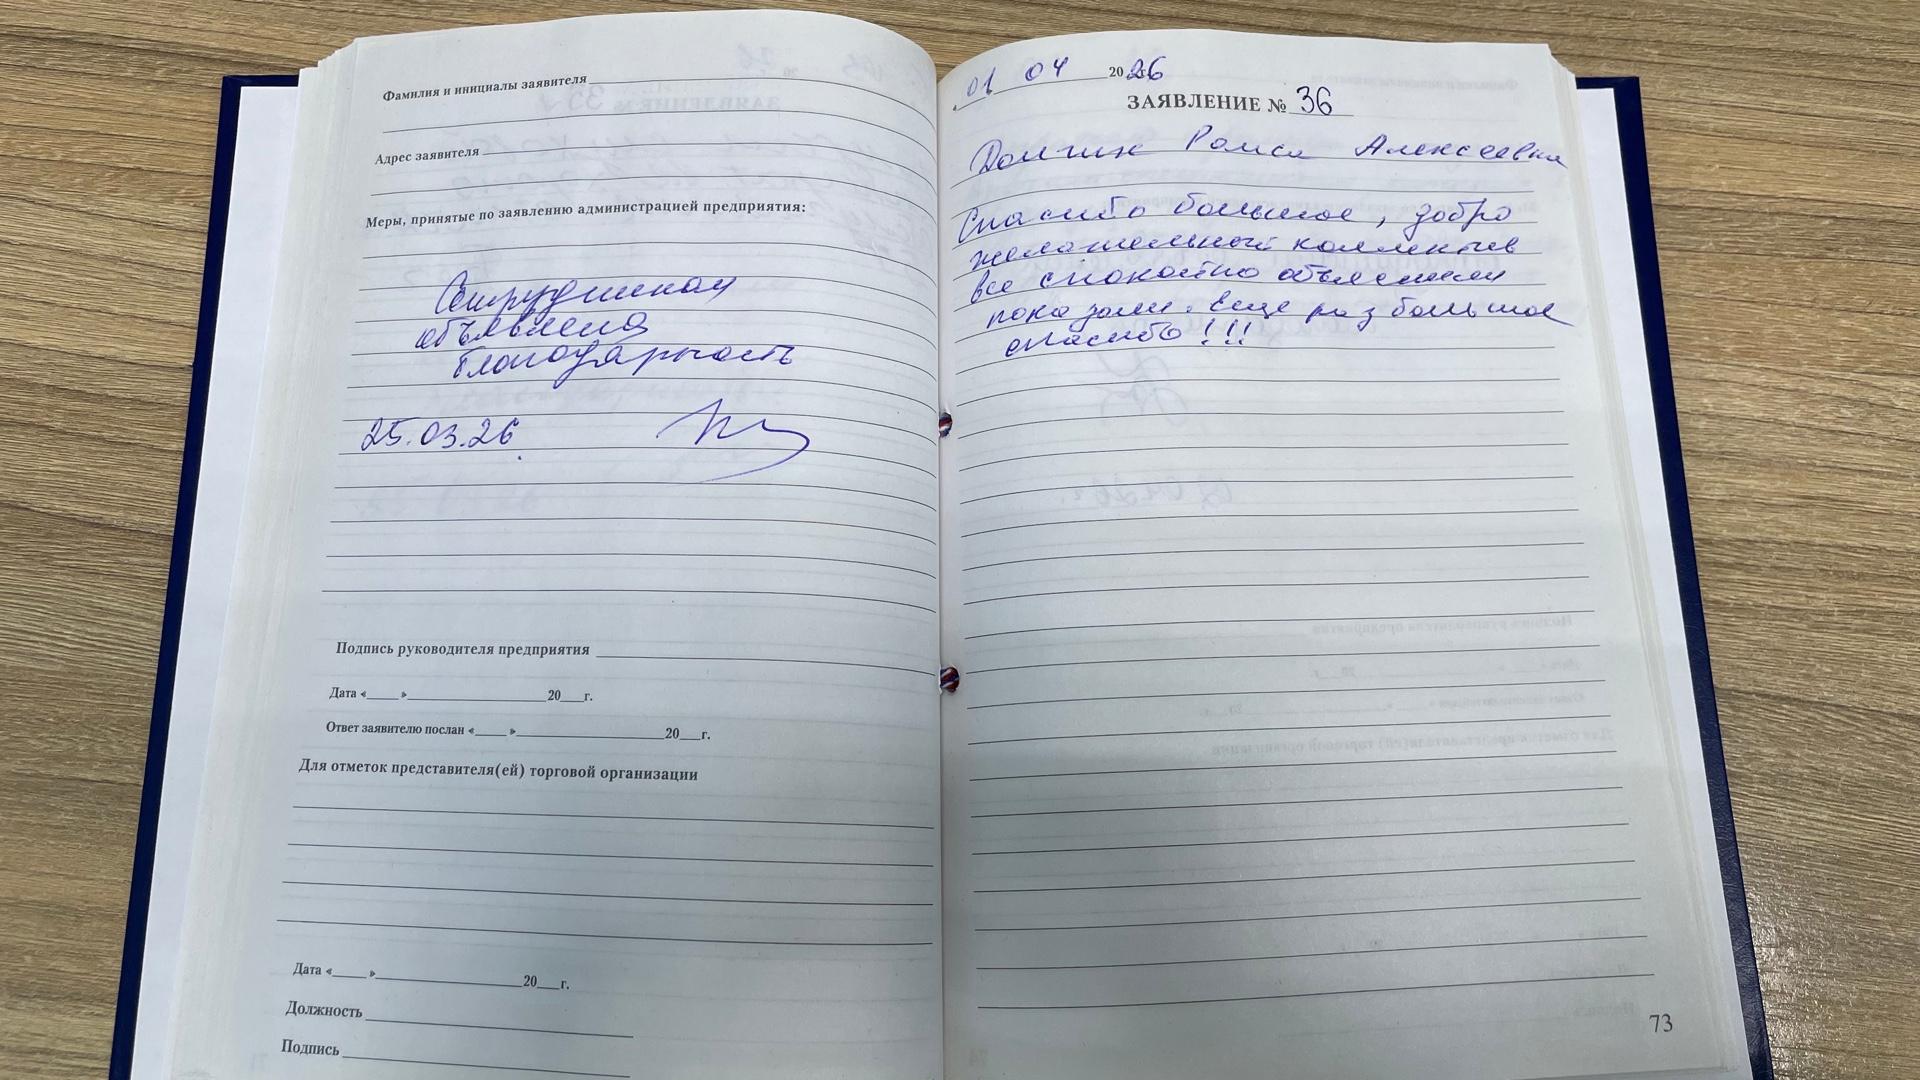 Фамилия и инициалы заявителя
Адрес заявителя
Меры, принятые по заявлению администрацией предприятия:
Сотрудникам
объявлена
благодарность
25.03.26
Подпись руководителя предприятия
Дата «____»____________20___г.
Ответ заявителю послан «____»____________20___г.
Для отметок представителя(ей) торговой организации
Дата «____»____________20___г.
Должность
Подпись
01 04 2026
ЗАЯВЛЕНИЕ № 36
Раиса Алексеевна
Спасибо большое, добро
желательный коллектив
все спокойно объяснили
показали. Еще раз большое
спасибо!!!
73